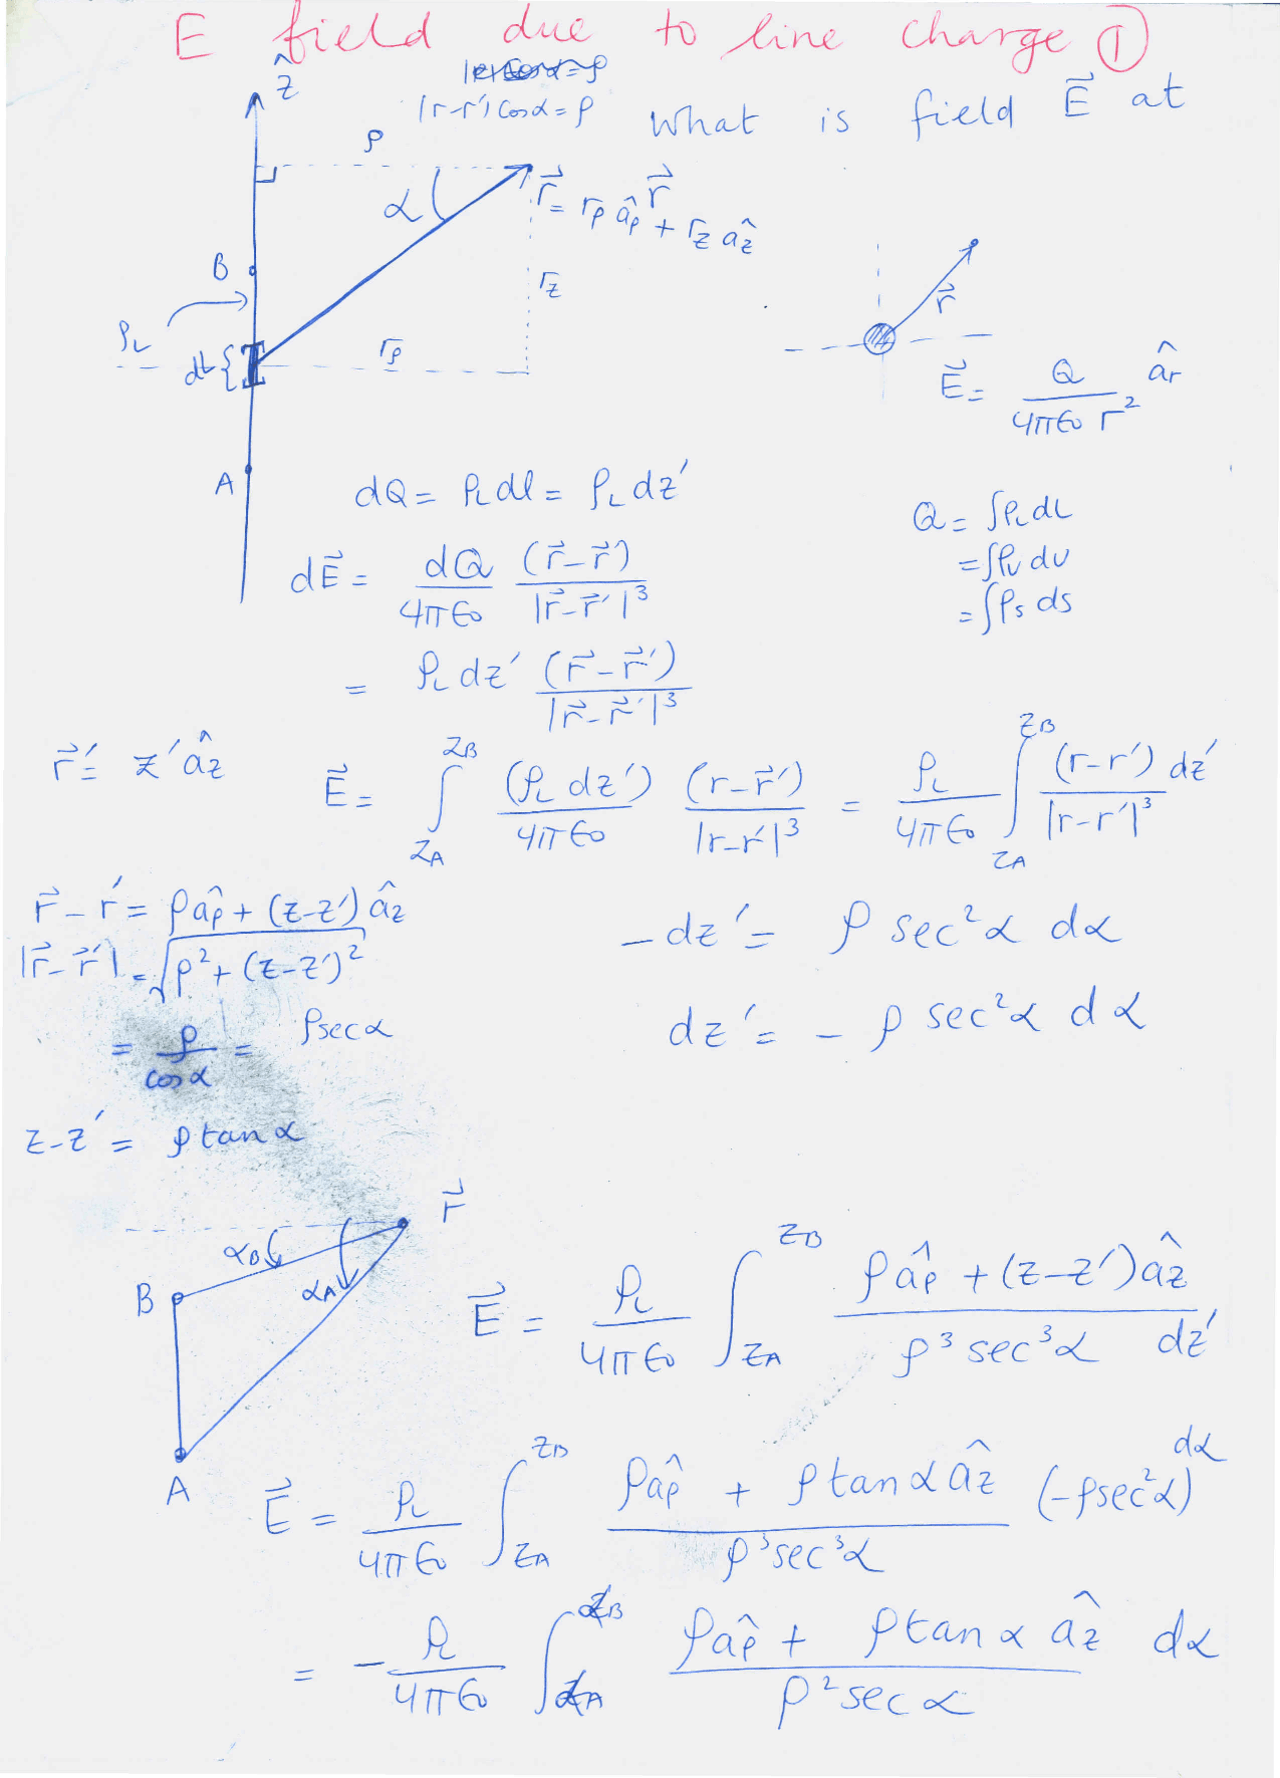 E field due to line charge ①
|r-r'| cosα = ρ
ẑ
What is field E⃗ at
r⃗
ρ
α
r⃗ = rρ âρ + rz âz
B
rz
ρL
dL {
rρ
A
r⃗
E⃗ = Q / 4πϵ₀ r² âr
dQ = ρL dl = ρL dz'
Q = ∫ρL dL
= ∫ρv dv
= ∫ρs ds
dE⃗ = dQ / 4πϵ₀ (r⃗ - r⃗') / |r⃗ - r⃗'|³
= ρL dz' (r⃗ - r⃗') / |r⃗ - r⃗'|³
r⃗' = z' âz
E⃗ = ∫ZA^ZB (ρL dz') / 4πϵ₀ (r - r⃗') / |r - r'|³ = ρL / 4πϵ₀ ∫ZA^ZB (r - r') dz' / |r - r'|³
r⃗ - r' = ρâρ + (z-z') âz
|r⃗ - r⃗'| = √ρ² + (z-z')²
= ρ / cosα = ρsecα
z-z' = ρ tanα
-dz' = ρ sec²α dα
dz' = -ρ sec²α dα
r⃗
αB
αA
B
A
E⃗ = ρL / 4πϵ₀ ∫ZA^ZB ρâρ + (z-z')âz / ρ³ sec³α dz'
E⃗ = ρL / 4πϵ₀ ∫ZA^ZB ρâρ + ρ tanα âz / ρ³sec³α (-ρsec²α) dα
= -ρL / 4πϵ₀ ∫αA^αB ρâρ + ρ tanα âz / ρ² sec α dα